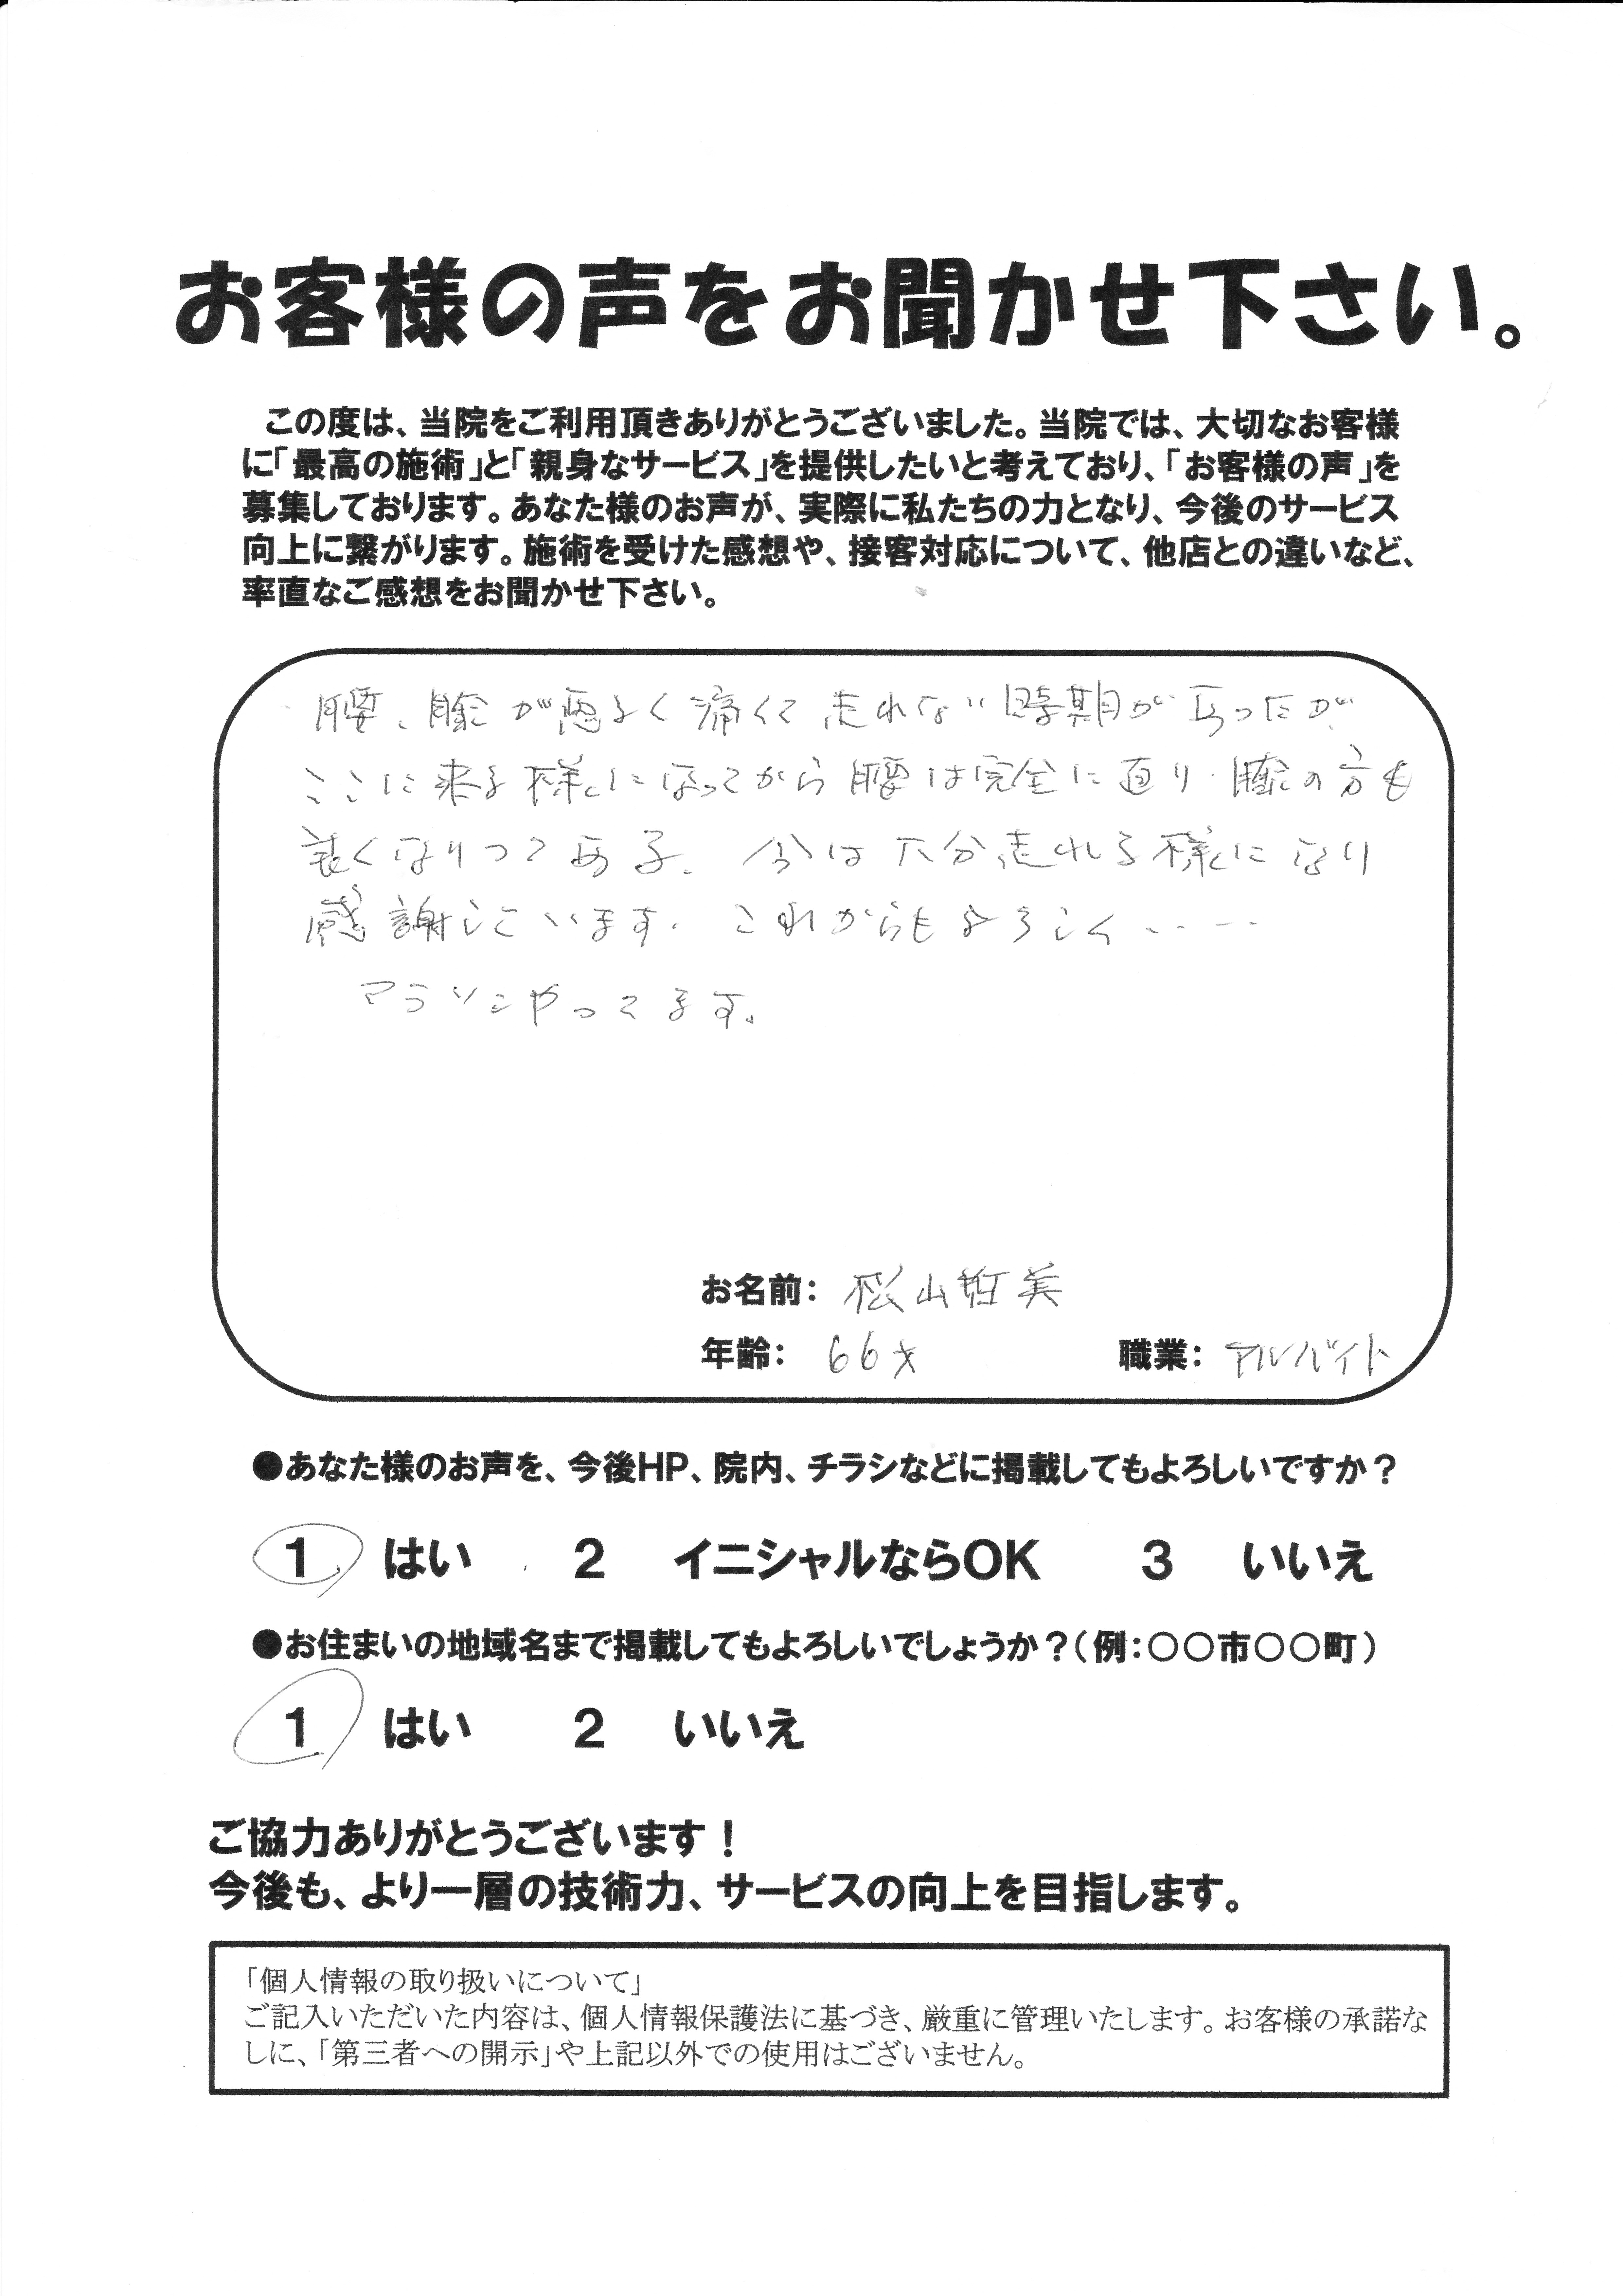 お客様の声をお聞かせ下さい。
この度は、当院をご利用頂きありがとうございました。当院では、大切なお客様
に「最高の施術」と「親身なサービス」を提供したいと考えており、「お客様の声」を
募集しております。あなた様のお声が、実際に私たちの力となり、今後のサービス
向上に繋がります。施術を受けた感想や、接客対応について、他店との違いなど、
率直なご感想をお聞かせ下さい。
腰、膝が悪るく痛くて走れない時期が有ったが、
ここに来る様になってから腰は完全に直り、膝の方も
良くなりつつある。今は大分走れる様になり
感謝しています。これからもよろしく・・・・
マラソンやってます。
お名前: 松山哲美
年齢: 66才 職業: アルバイト
●あなた様のお声を、今後HP、院内、チラシなどに掲載してもよろしいですか?
1 はい 2 イニシャルならOK 3 いいえ
●お住まいの地域名まで掲載してもよろしいでしょうか?(例:○○市○○町)
1 はい 2 いいえ
ご協力ありがとうございます!
今後も、より一層の技術力、サービスの向上を目指します。
「個人情報の取り扱いについて」
ご記入いただいた内容は、個人情報保護法に基づき、厳重に管理いたします。お客様の承諾な
しに、「第三者への開示」や上記以外での使用はございません。